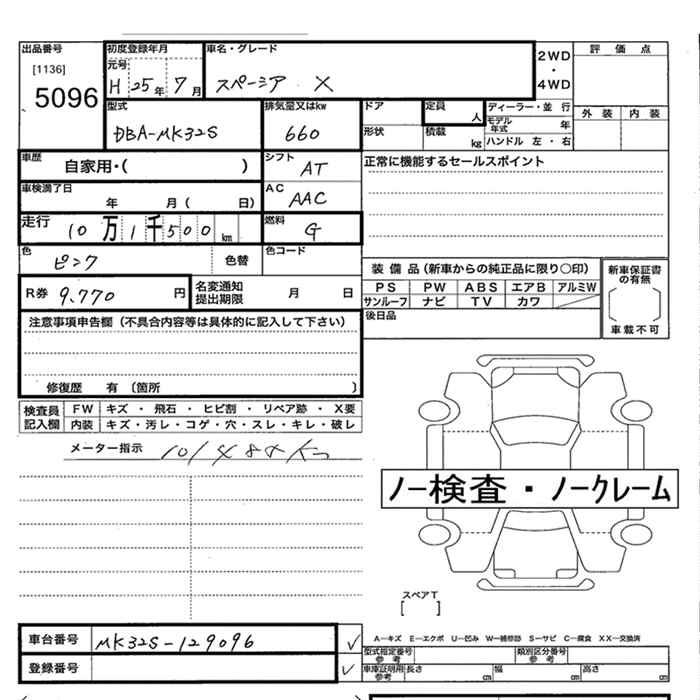 出品番号 初度登録年月 車名・グレード 評価点
[1136] 元号 2WD
5096 H 25年 7月 スペーシア X ・
4WD
型式 排気量又はkw ドア 定員 ディーラー・並行 外装 内装
DBA-MK32S 660 人 モデル年式 年
形状 積載 kg ハンドル 左・右
車歴 自家用・( ) シフト AT 正常に機能するセールスポイント
車検満了日 年 月( 日) AC AAC
走行 10万1千500km 燃料 G
色 ピンク 色替 色コード
装備品(新車からの純正品に限り○印) 新車保証書の有無
R券 9,770円 名変通知提出期限 月 日 PS PW ABS エアB アルミW
サンルーフ ナビ TV カワ
注意事項申告欄(不具合内容等は具体的に記入して下さい) 後日品 車載不可
修復歴 有 〔箇所 〕
検査員記入欄 FW キズ・飛石・ヒビ割・リペア跡・X要
内装 キズ・汚レ・コゲ・穴・スレ・キレ・破レ
メーター指示
ノー検査・ノークレーム
スペアT
[ ]
車台番号 MK32S-129096 ✓ A—キズ E—エクボ U—凹み W—補修跡 S—サビ C—腐食 XX—交換済
型式指定番号 参考 類別区分番号 参考
登録番号 ✓ 車庫証明用参考 長さ cm 幅 cm 高さ cm